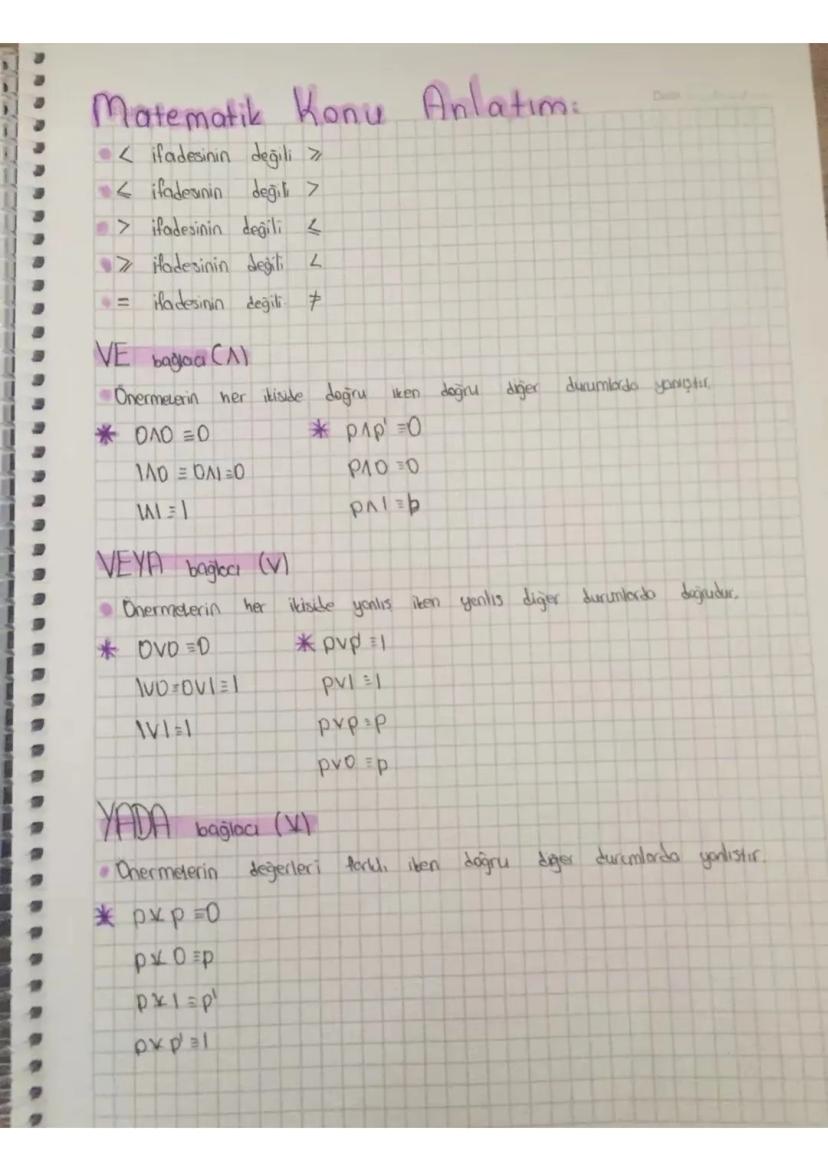 Matematik Konu Anlatım:
< ifadesinin değili ⩾
⩽ ifadesinin değili >
> ifadesinin değili ⩽
⩾ ifadesinin değili <
= ifadesinin değili ≠
VE bağlacı (Λ)
Önermelerin her ikiside doğru iken doğru diğer durumlarda yanlıştır.
* 0Λ0 ≡ 0 * pΛp' ≡ 0
1Λ0 ≡ 0Λ1 ≡ 0 pΛ0 ≡ 0
1Λ1 ≡ 1 pΛ1 ≡ p
VEYA bağlacı (V)
Önermelerin her ikiside yanlış iken yanlış diğer durumlarda doğrudur.
* 0V0 ≡ 0 * pVp' ≡ 1
1V0 ≡ 0V1 ≡ 1 pV1 ≡ 1
1V1 ≡ 1 pVp ≡ p
pV0 ≡ p
YADA bağlacı (⊻)
Önermelerin değerleri farklı iken doğru diğer durumlarda yanlıştır.
* p⊻p ≡ 0
p⊻0 ≡ p
p⊻1 ≡ p'
p⊻p' ≡ 1